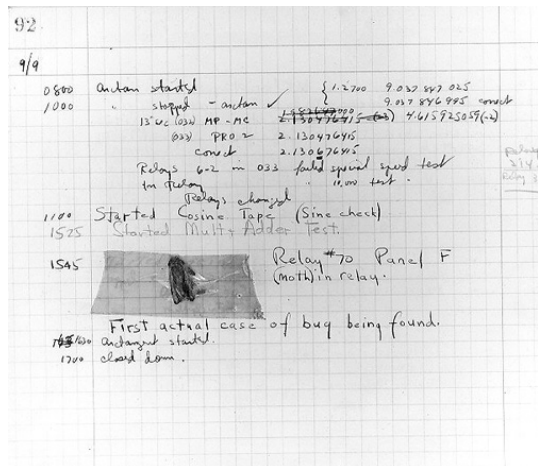 92
9/9
0800 Antan started { 1.2700 9.037 847 025
1000 " stopped - antan ✓ 9.037 846 995 conect
13"uc (032) MP - MC 2.130476415 (-3) 4.615925059(-2)
(033) PRO 2 2.130476415
conect 2.130676415
Relays 6-2 in 033 failed special speed test
in Relay " 10,000 test .
Relays changed
1100 Started Cosine Tape (Sine check)
1525 Started Mult + Adder Test.
1545 Relay #70 Panel F
(moth) in relay.
First actual case of bug being found.
1630 antangent started.
1700 closed down.